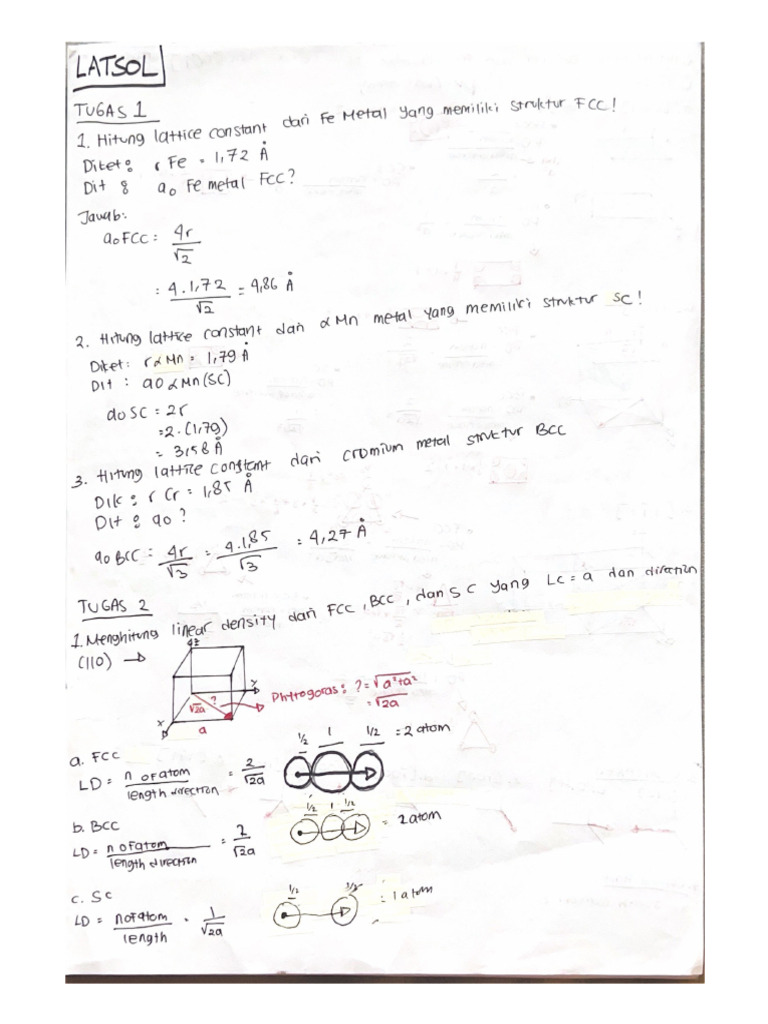 LATSOL
TUGAS 1
1. Hitung lattice constant dari Fe Metal yang memiliki struktur FCC!
Diket: r Fe = 1,72 Å
Dit : a₀ Fe metal FCC?
Jawab:
a₀ FCC : 4r/√2
: 4.1,72/√2 = 4,86 Å
2. Hitung lattice constant dari α Mn metal yang memiliki struktur SC!
Diket: r α Mn = 1,79 Å
Dit : a₀ α Mn (SC)
a₀ SC = 2r
=2.(1,79)
= 3,58 Å
3. Hitung lattice constant dari cromium metal struktur BCC
Dik : r Cr = 1,85 Å
Dit : a₀ ?
a₀ BCC : 4r/√3 = 4.1,85/√3 = 4,27 Å
TUGAS 2
1. Menghitung linear density dari FCC, BCC, dan SC yang LC = a dan direction
(110) →
z
y
x
√2a
?
a
Phytogoras: ? = √a²+a²
= √2a
a. FCC
LD = n of atom/length direction = 2/√2a
1/2 1 1/2 = 2 atom
b. BCC
LD = n of atom/length direction = 2/√2a
1/2 1 1/2 = 2 atom
c. SC
LD = n of atom/length = 1/√2a
1/2 1/2 = 1 atom